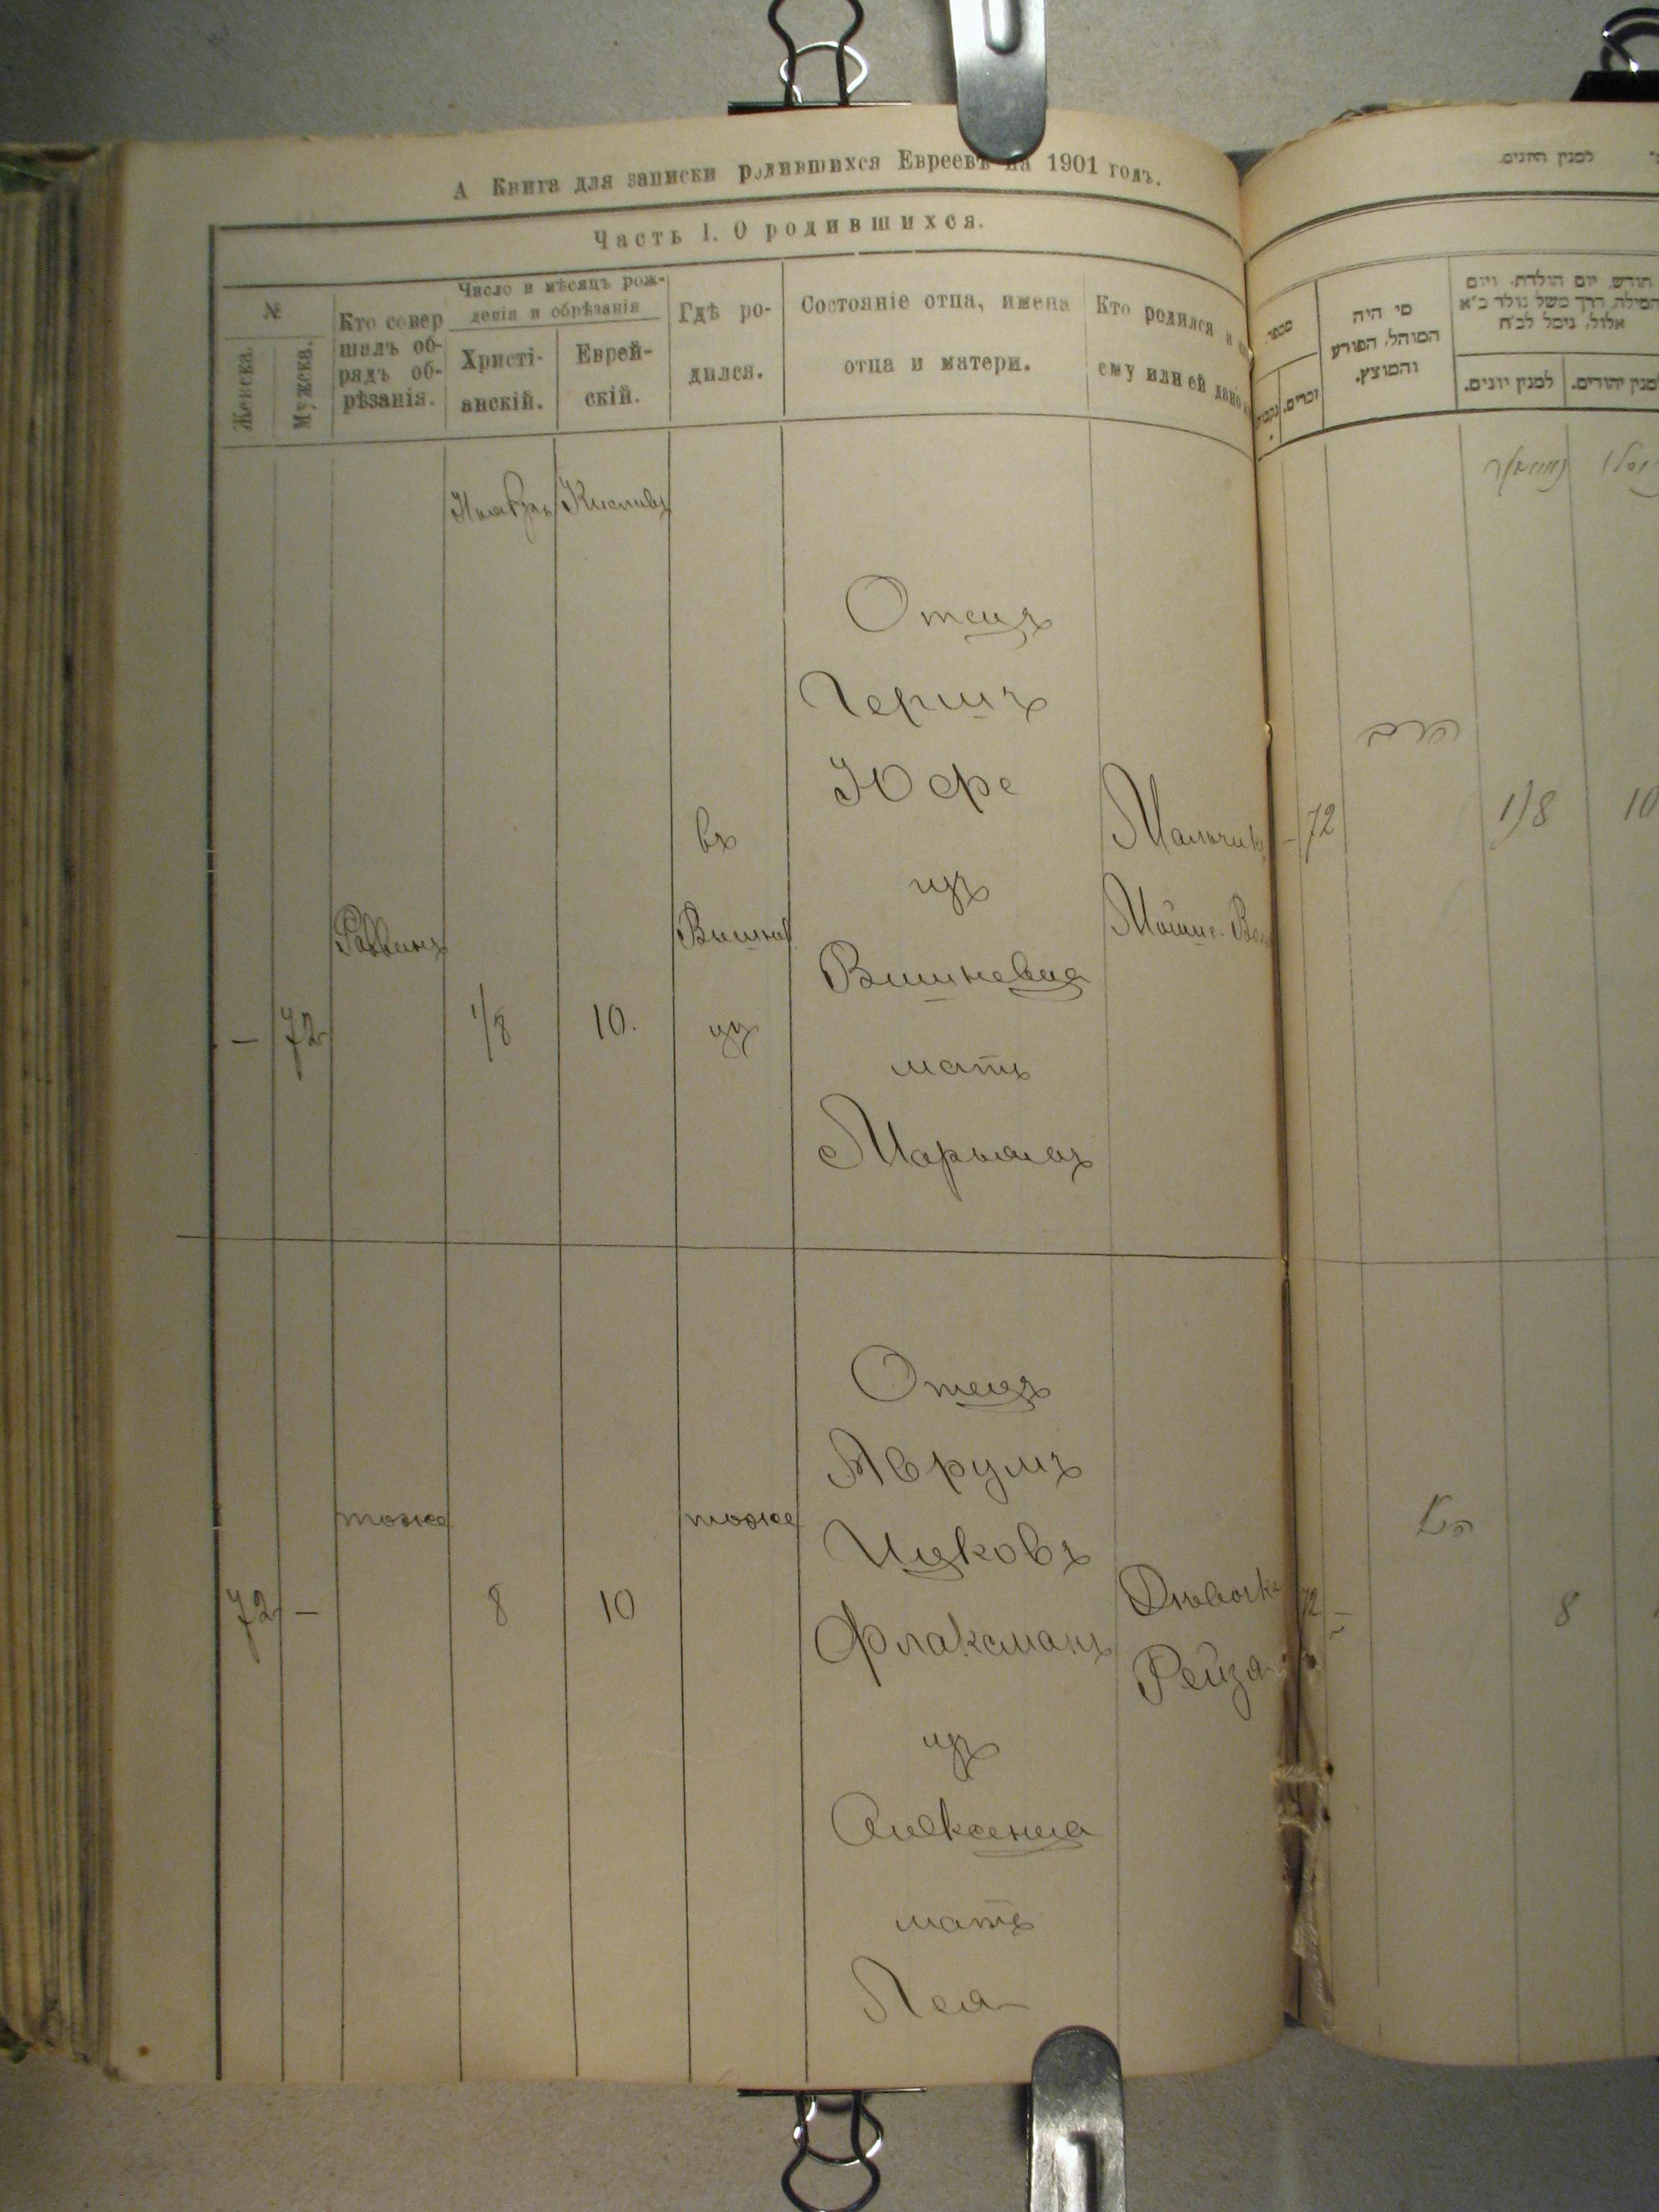 А Книга для записки родившихся Евреевъ на 1901 годъ.
Часть I. О родившихся.
№
Женска.
Мужска.
Кто совер
шалъ об-
рядъ об-
рѣзанія.
Число и мѣсяцъ рож-
денія и обрѣзанія
Христі-
анскій.
Еврей-
скій.
Гдѣ ро-
дился.
Состояніе отца, имена
отца и матери.
Кто родился и
ему или ей дано
Ноябрь
Кислевъ
–
72
Раввинъ
1/8
10.
въ
Вишнев
цѣ
Отецъ
Гершъ
Юфе
изъ
Вишневца
мать
Марьямъ
Мальчикъ
Мойше-
72
–
тоже
8
10
тоже
Отецъ
Аврумъ
Ицковъ
Флаксманъ
изъ
Алексенца
мать
Лея
Дѣвочка
Рейзя
למנין היונים.
מספר
נקבות
זכרים.
מי היה
המוהל, הפורע
והמוצץ.
חודש, יום הולדת, ויום
המילה, דרך משל נולד כ״א
אלול, נימל לכ״ח
למנין יונים.
למנין יהודים.
–
72
הרב
1/8
10
72
–
8